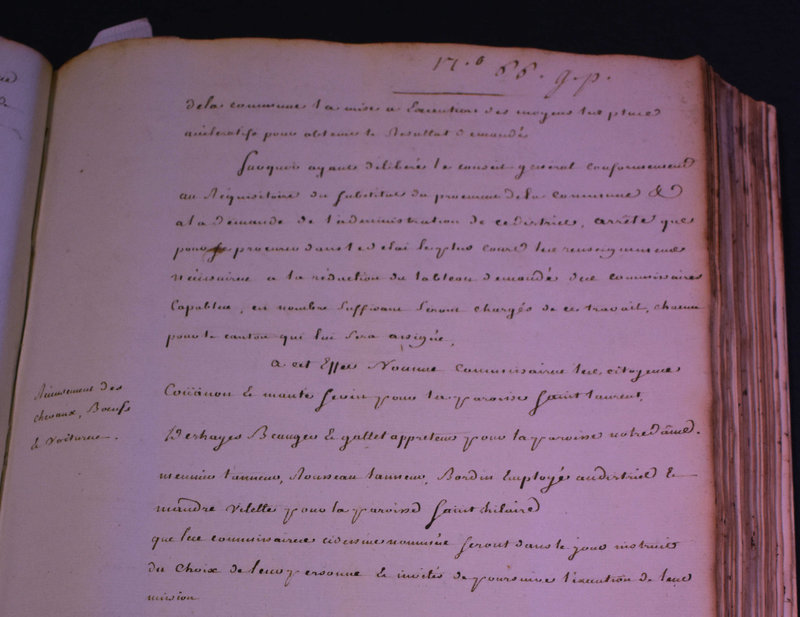 17.e 66. g. p.
de la commune la mise a Execution des moyens les plus
acceleratifs pour obtenir le Resultat demandé
Surquoi ayant délibéré le conseil general conformement
au Réquisitoire du Substitut du procureur de la commune &
a la demande de l'administration de ce district, arrête que
pour se procurer dans le delai le plus court les renseignements
nécéssaires a la rédaction du tableau demandé des commissaires
Capables, en nombre Suffisant Seront chargés de ce travail, chacun
pour le canton qui lui Sera assigné,
a cet Effet Nomme commissaires les citoyens
Coüanon & mante Sevin pour la paroisse Saint Laurent,
Derhayes Beauger & gallet appreteur pour la paroisse notre Dâme.
meunier tanneur, Rousseau tanneur, Bordin Employé au district &
mandre Vilette pour la paroisse Saint hilaire
que les commissaires cidessus nommés Seront dans le jour instruit
du choix de leur personne & invités de poursuivre l'éxécution de leur
mission
Récensement des
chevaux, Bœufs
& voitures.